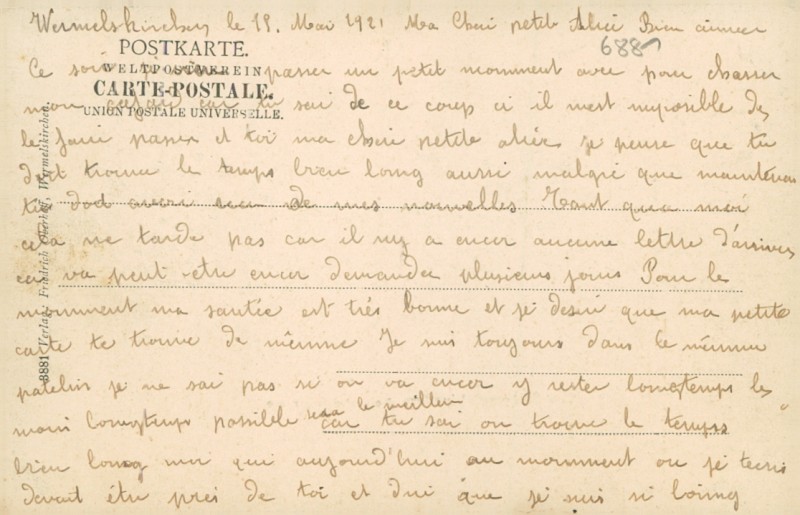 Wermelskirchen le 19. Mai 1921 Ma Cheri petite Alice Bien aimeer
688
POSTKARTE.
Ce soir passer un petit momment avec pour chasser
WELTPOSTVEREIN
CARTE-POSTALE.
mon cafair car tu sai de ce coup ci il mest imposible de
UNION POSTALE UNIVERSELLE.
le fair passer et toi ma cheri petite alice je pense que tu
doit trouver le temps bien long aussi malgré que maintenan
tu doit avoir de mes nouvelles Tant qua moi
cela ne tarde pas car il ny a encor aucune lettre d'arriver
ca va peut être encor demander plusieurs jours Pour le
momment ma santée est très bonne et je desir que ma petite
carte te trouve de mêmme Je suis toujours dans le mêmme
patelin je ne sai pas si on va encor y rester longtemps le
moin longtemps possible sera le meilleur car tu sai on trouve le temps
bien long moi qui aujourd'hui au momment ou je tecris
devait être pres de toi et que je suis si loing
8881 Verlag: Friedrich Wermelskirchen.